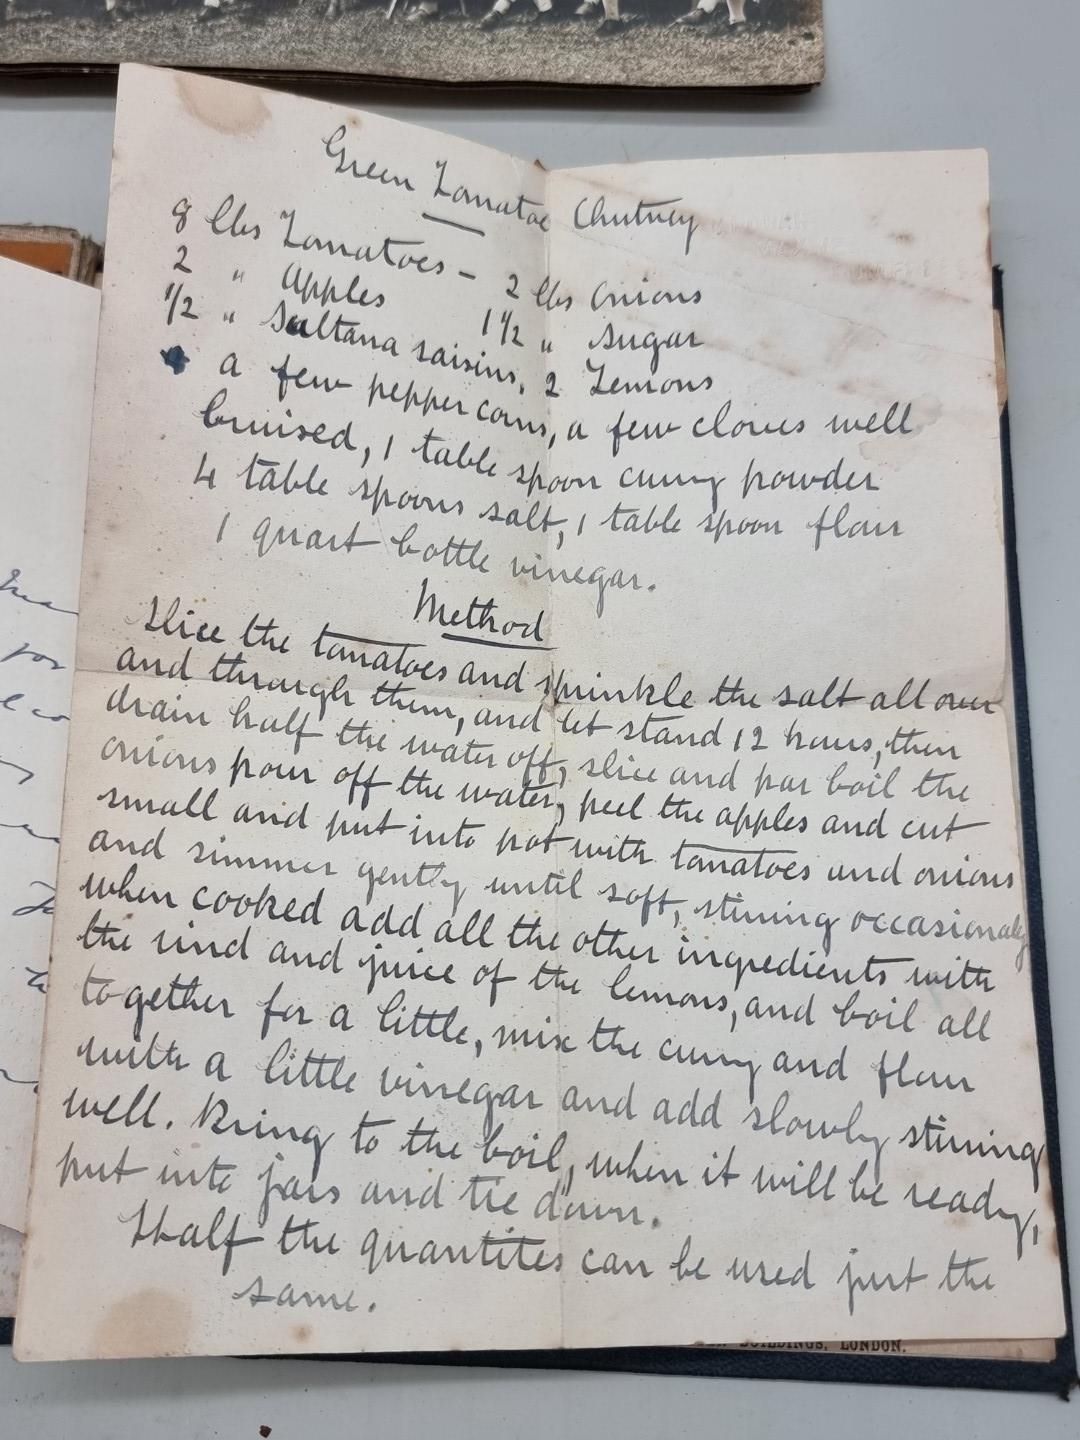 Green Tomatoe Chutney
8 lbs Tomatoes - 2 lbs Onions
2 " Apples 1 1/2 " Sugar
1/2 " Sultana raisins, 2 Lemons
a few pepper corns, a few cloves well
bruised, 1 table spoon curry powder
4 table spoons salt, 1 table spoon flour
1 quart bottle vinegar.
Method
Slice the tomatoes and sprinkle the salt all over
and through them, and let stand 12 hours, then
drain half the water off, slice and par boil the
onions pour off the water, peel the apples and cut
small and put into pot with tomatoes and onions
and simmer gently until soft, stirring occasionaly
when cooked add all the other ingredients with
the rind and juice of the lemons, and boil all
together for a little, mix the curry and flour
with a little vinegar and add slowly stirring
well. Bring to the boil, when it will be ready,
put into jars and tie down.
Half the quantites can be used just the
same.
BUILDINGS, LONDON.